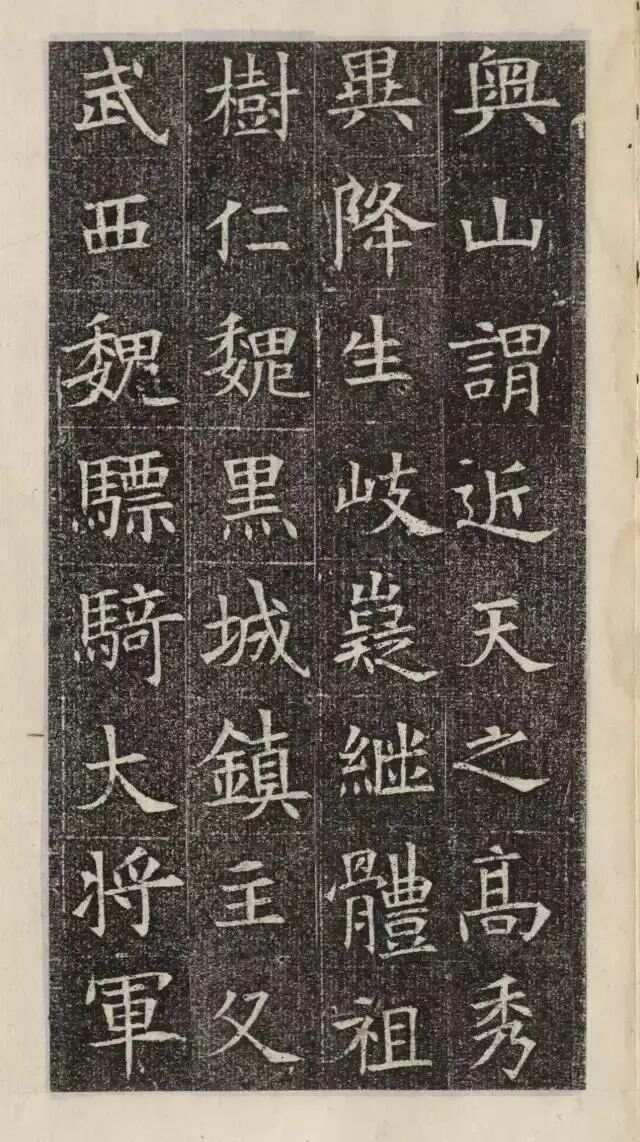 輿山謂近天之髙秀
異降生岐嶷継體祖
樹仁魏黒城鎮主父
武西魏驃騎大将軍